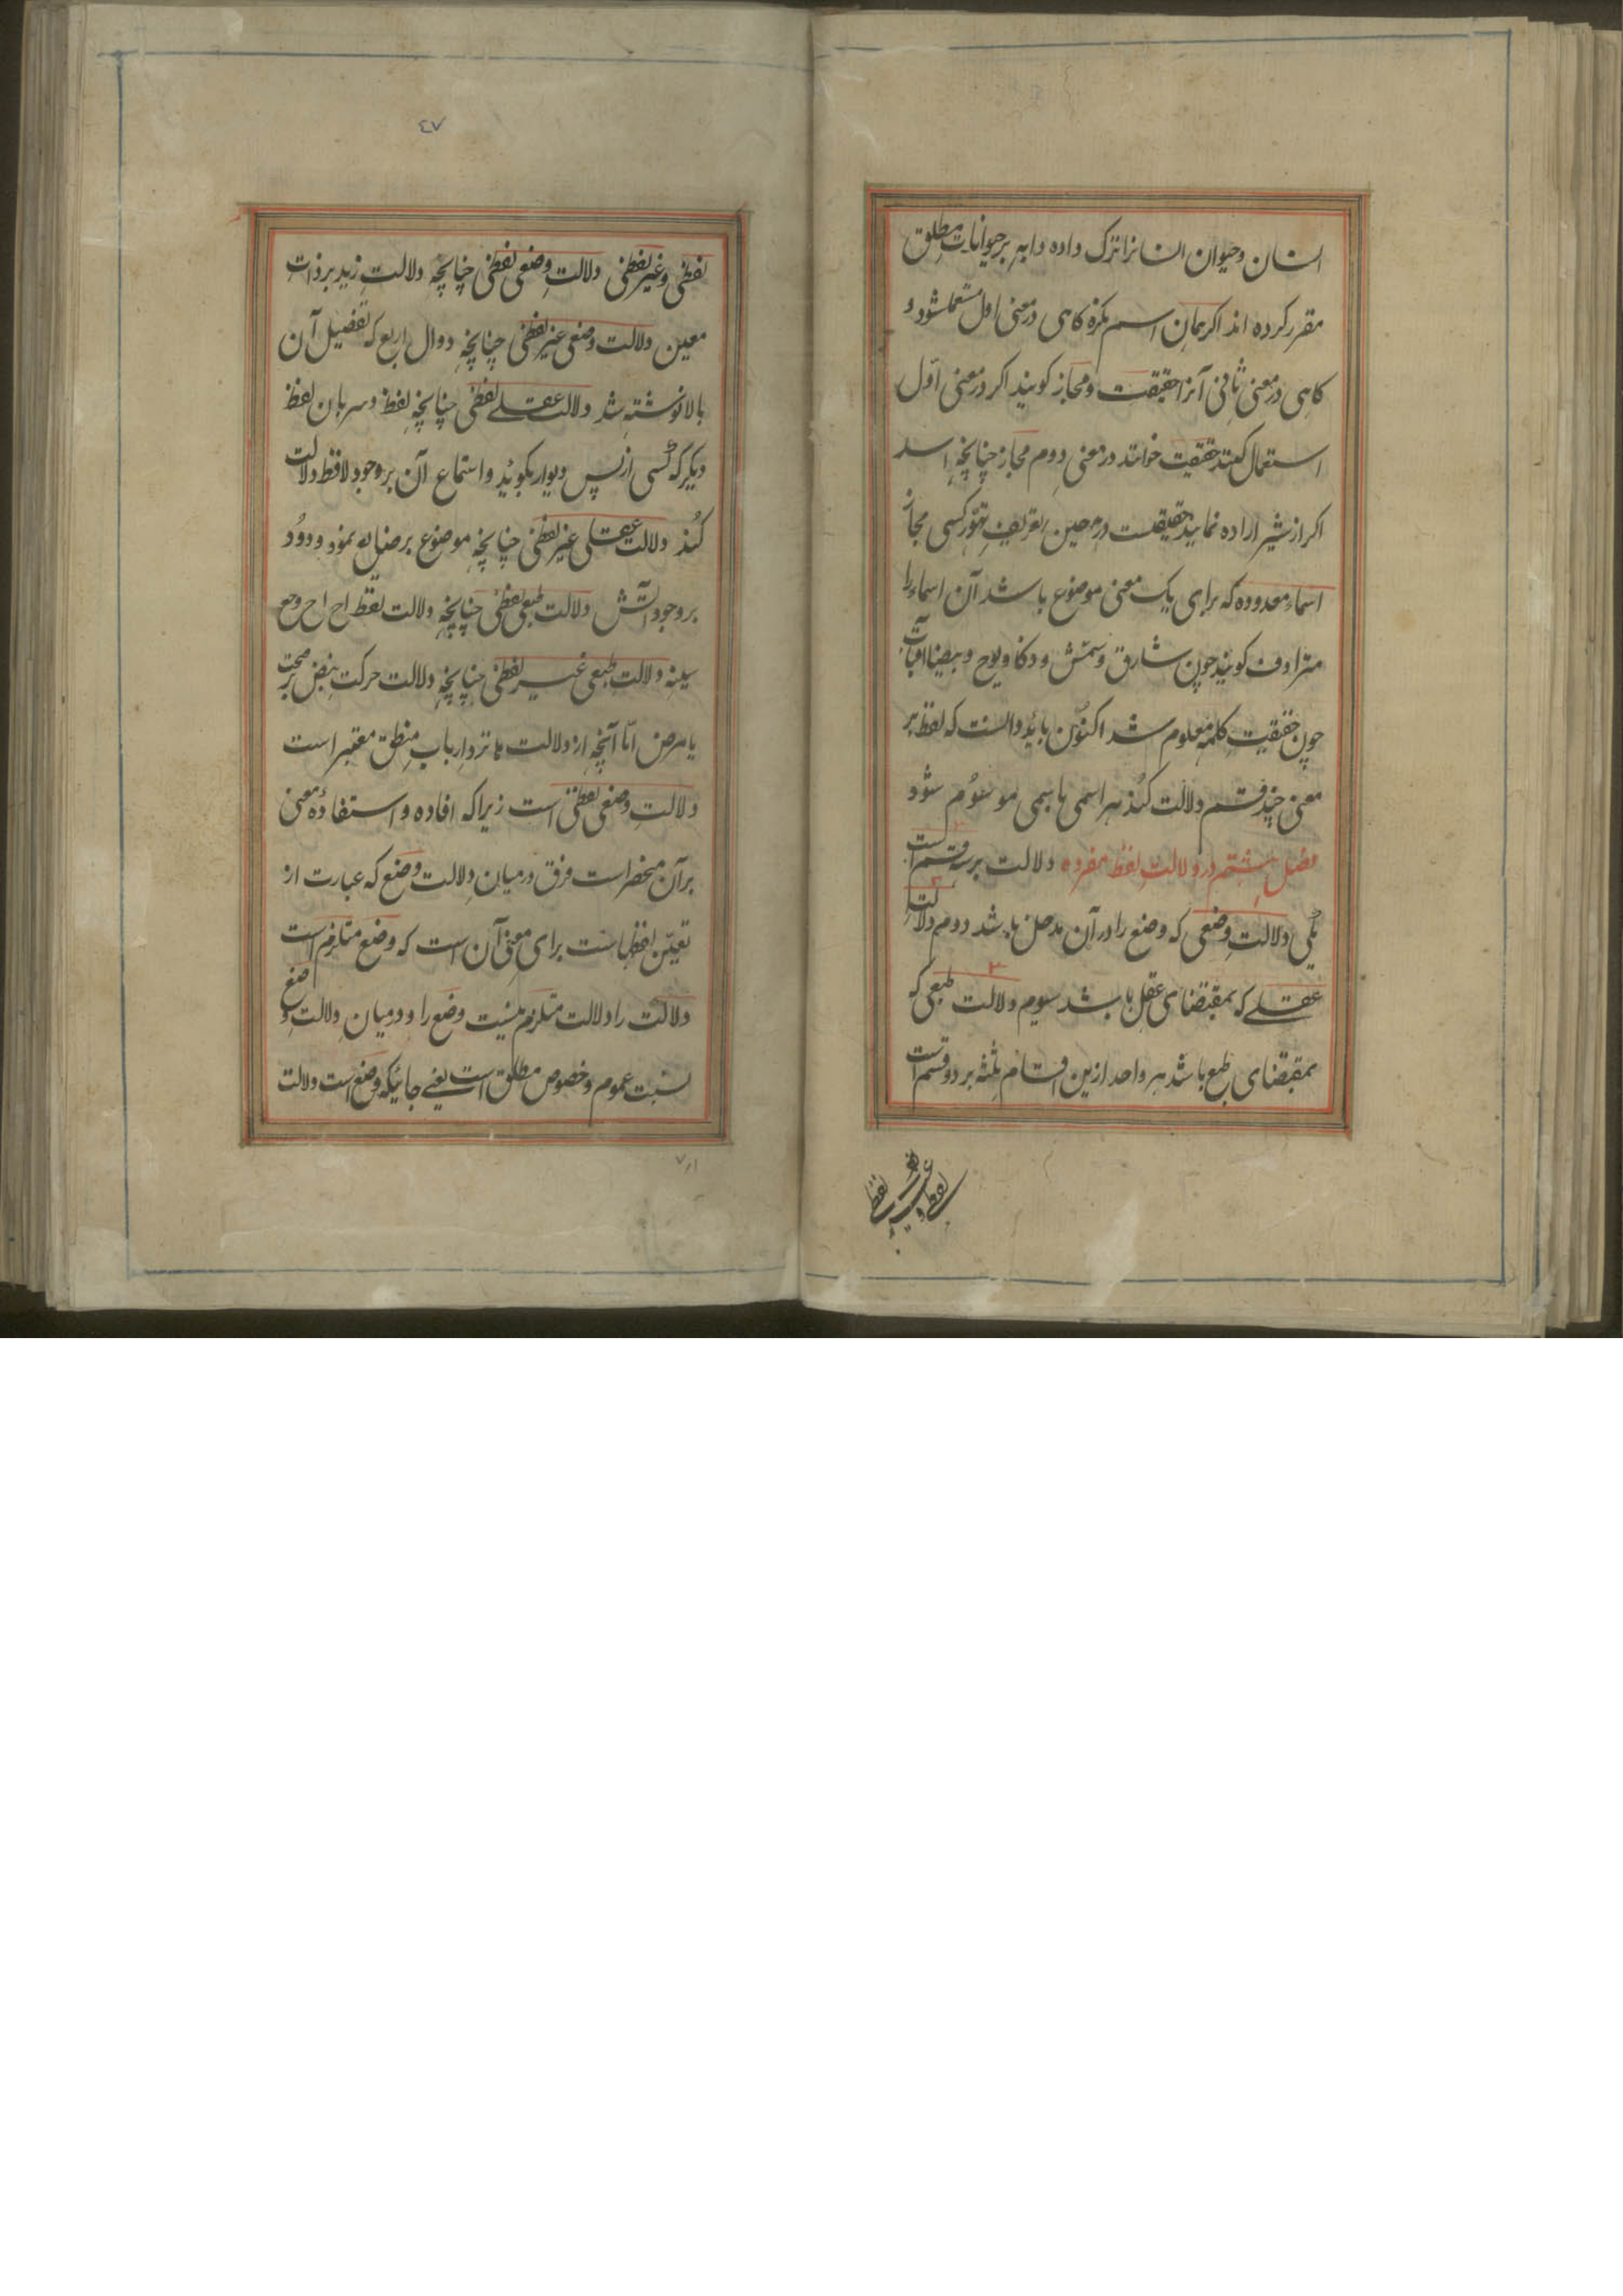 انسان و حیوان انسانرا ترک داده دابه بر حیوانات مطلق
مقرر کرده اند اکر همان اسم نکره کاهی در معنی اول مستعمل شود و
کاهی در معنی ثانی آنرا حقیقت و مجاز کویند اکر در معنی اول
استعمال کنند حقیقت خوانند در معنی دوم مجاز چنانچه اسد
اکر از شیر اراده نمایند حقیقت در حین تعریف تهور کسی مجاز
اسماء معدوده که برای یک معنی موضوع باشد آن اسماء را
مترادف کویند چون شارق و شمس و ذکا و یوح و بیضا آفتاب
چون حقیقت کلمه معلوم شد اکنون باید دانست که لفظ بر
معنی چند قسم دلالت کند هر اسمی باسمی موسوم شود
فصل هشتم در دلالت لفظ مفرده دلالت بر سه قسم است
یکی دلالت وضعی که وضع را در آن مدخل باشد دوم دلالت
عقلی که بمقتضای عقل باشد سیوم دلالت طبعی که
بمقتضای طبع باشد هر واحد ازین اقسام ثلثه بر دو قسم است
لفظی و غیر لفظی
٤٧
لفظی و غیر لفظی دلالت وضعی لفظی چنانچه دلالت زید بر ذات
معین دلالت وضعی غیر لفظی چنانچه دوال اربع که تفضیل آن
بالا نوشته شد دلالت عقلی لفظی چنانچه لفظ و سر بان لفظ
دیکر که کسی از پس دیوار بکوئید و استماع آن بر وجود لافظ دلالت
کند دلالت عقلی غیر لفظی چنانچه موضوع بر صنایع نمود و دود
بر وجود آتش دلالت طبعی لفظی چنانچه دلالت لفظ اح اح وجع
سینه دلالت طبعی غیر لفظی چنانچه دلالت حرکت نبض بر صحت
یا مرض امّا آنچه از دلالت ها نزد ارباب منطق معتبر است
دلالت وضعی لفظی است زیرا که افاده و استفادهٔ معنی
بر آن منحصر است فرق درمیان دلالت وضع که عبارت از
تعیّن لفظ است برای معنی آن است که وضع متلزم است
دلالت را و دلالت متلزم نیست وضع را و درمیان دلالت وضع
نسبت عموم و خصوص مطلق است یعنی جائیکه وضع است دلالت